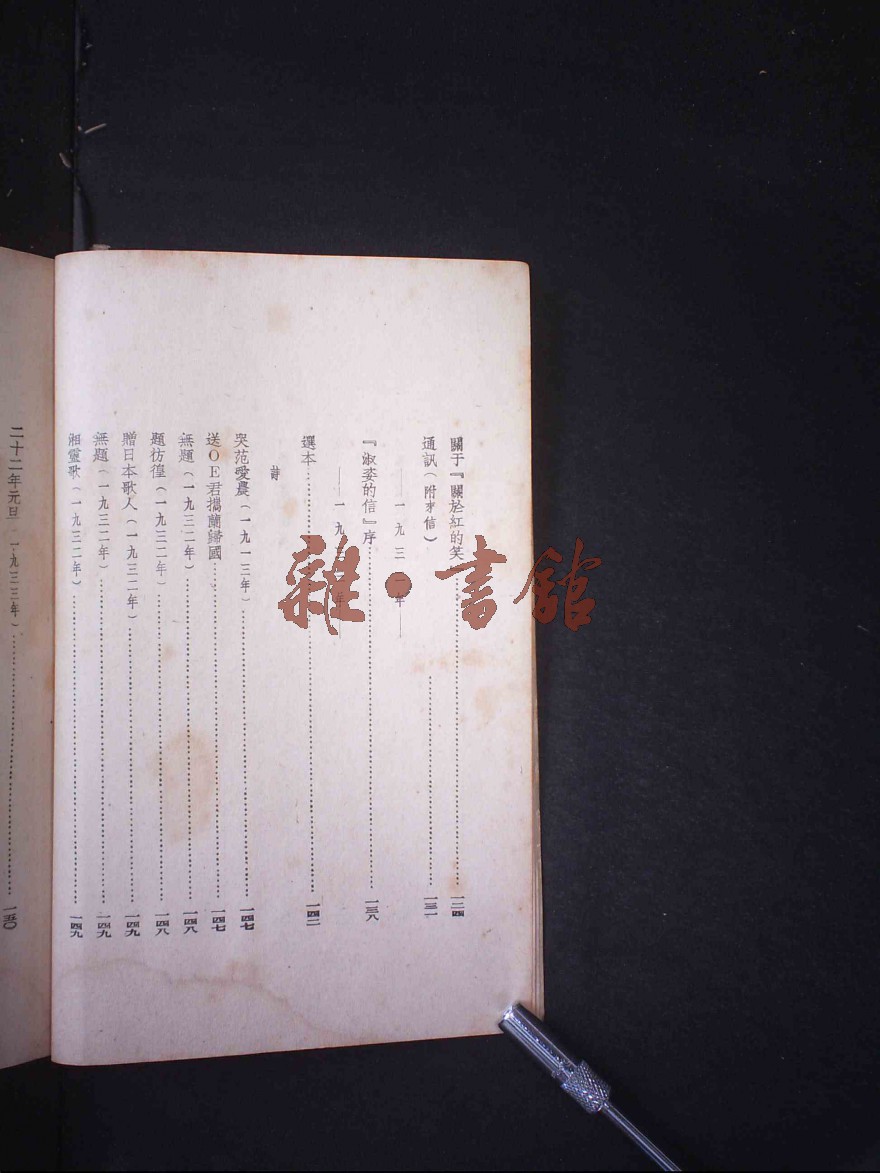 關于『關於紅的笑』……一二四
通訊(附來信)……一三一
——一九三二年——
『淑姿的信』序……一三八
——一九三三年——
選本……一四二
詩
哭范愛農(一九一三年)……一四七
送OE君攜蘭歸國……一四七
無題(一九三二年)……一四八
題彷徨(一九三二年)……一四八
贈日本歌人(一九三二年)……一四九
無題(一九三二年)……一四九
湘靈歌(一九三二年)……一四九
二十二年元旦(一九三三年)……一五〇
雜·書館